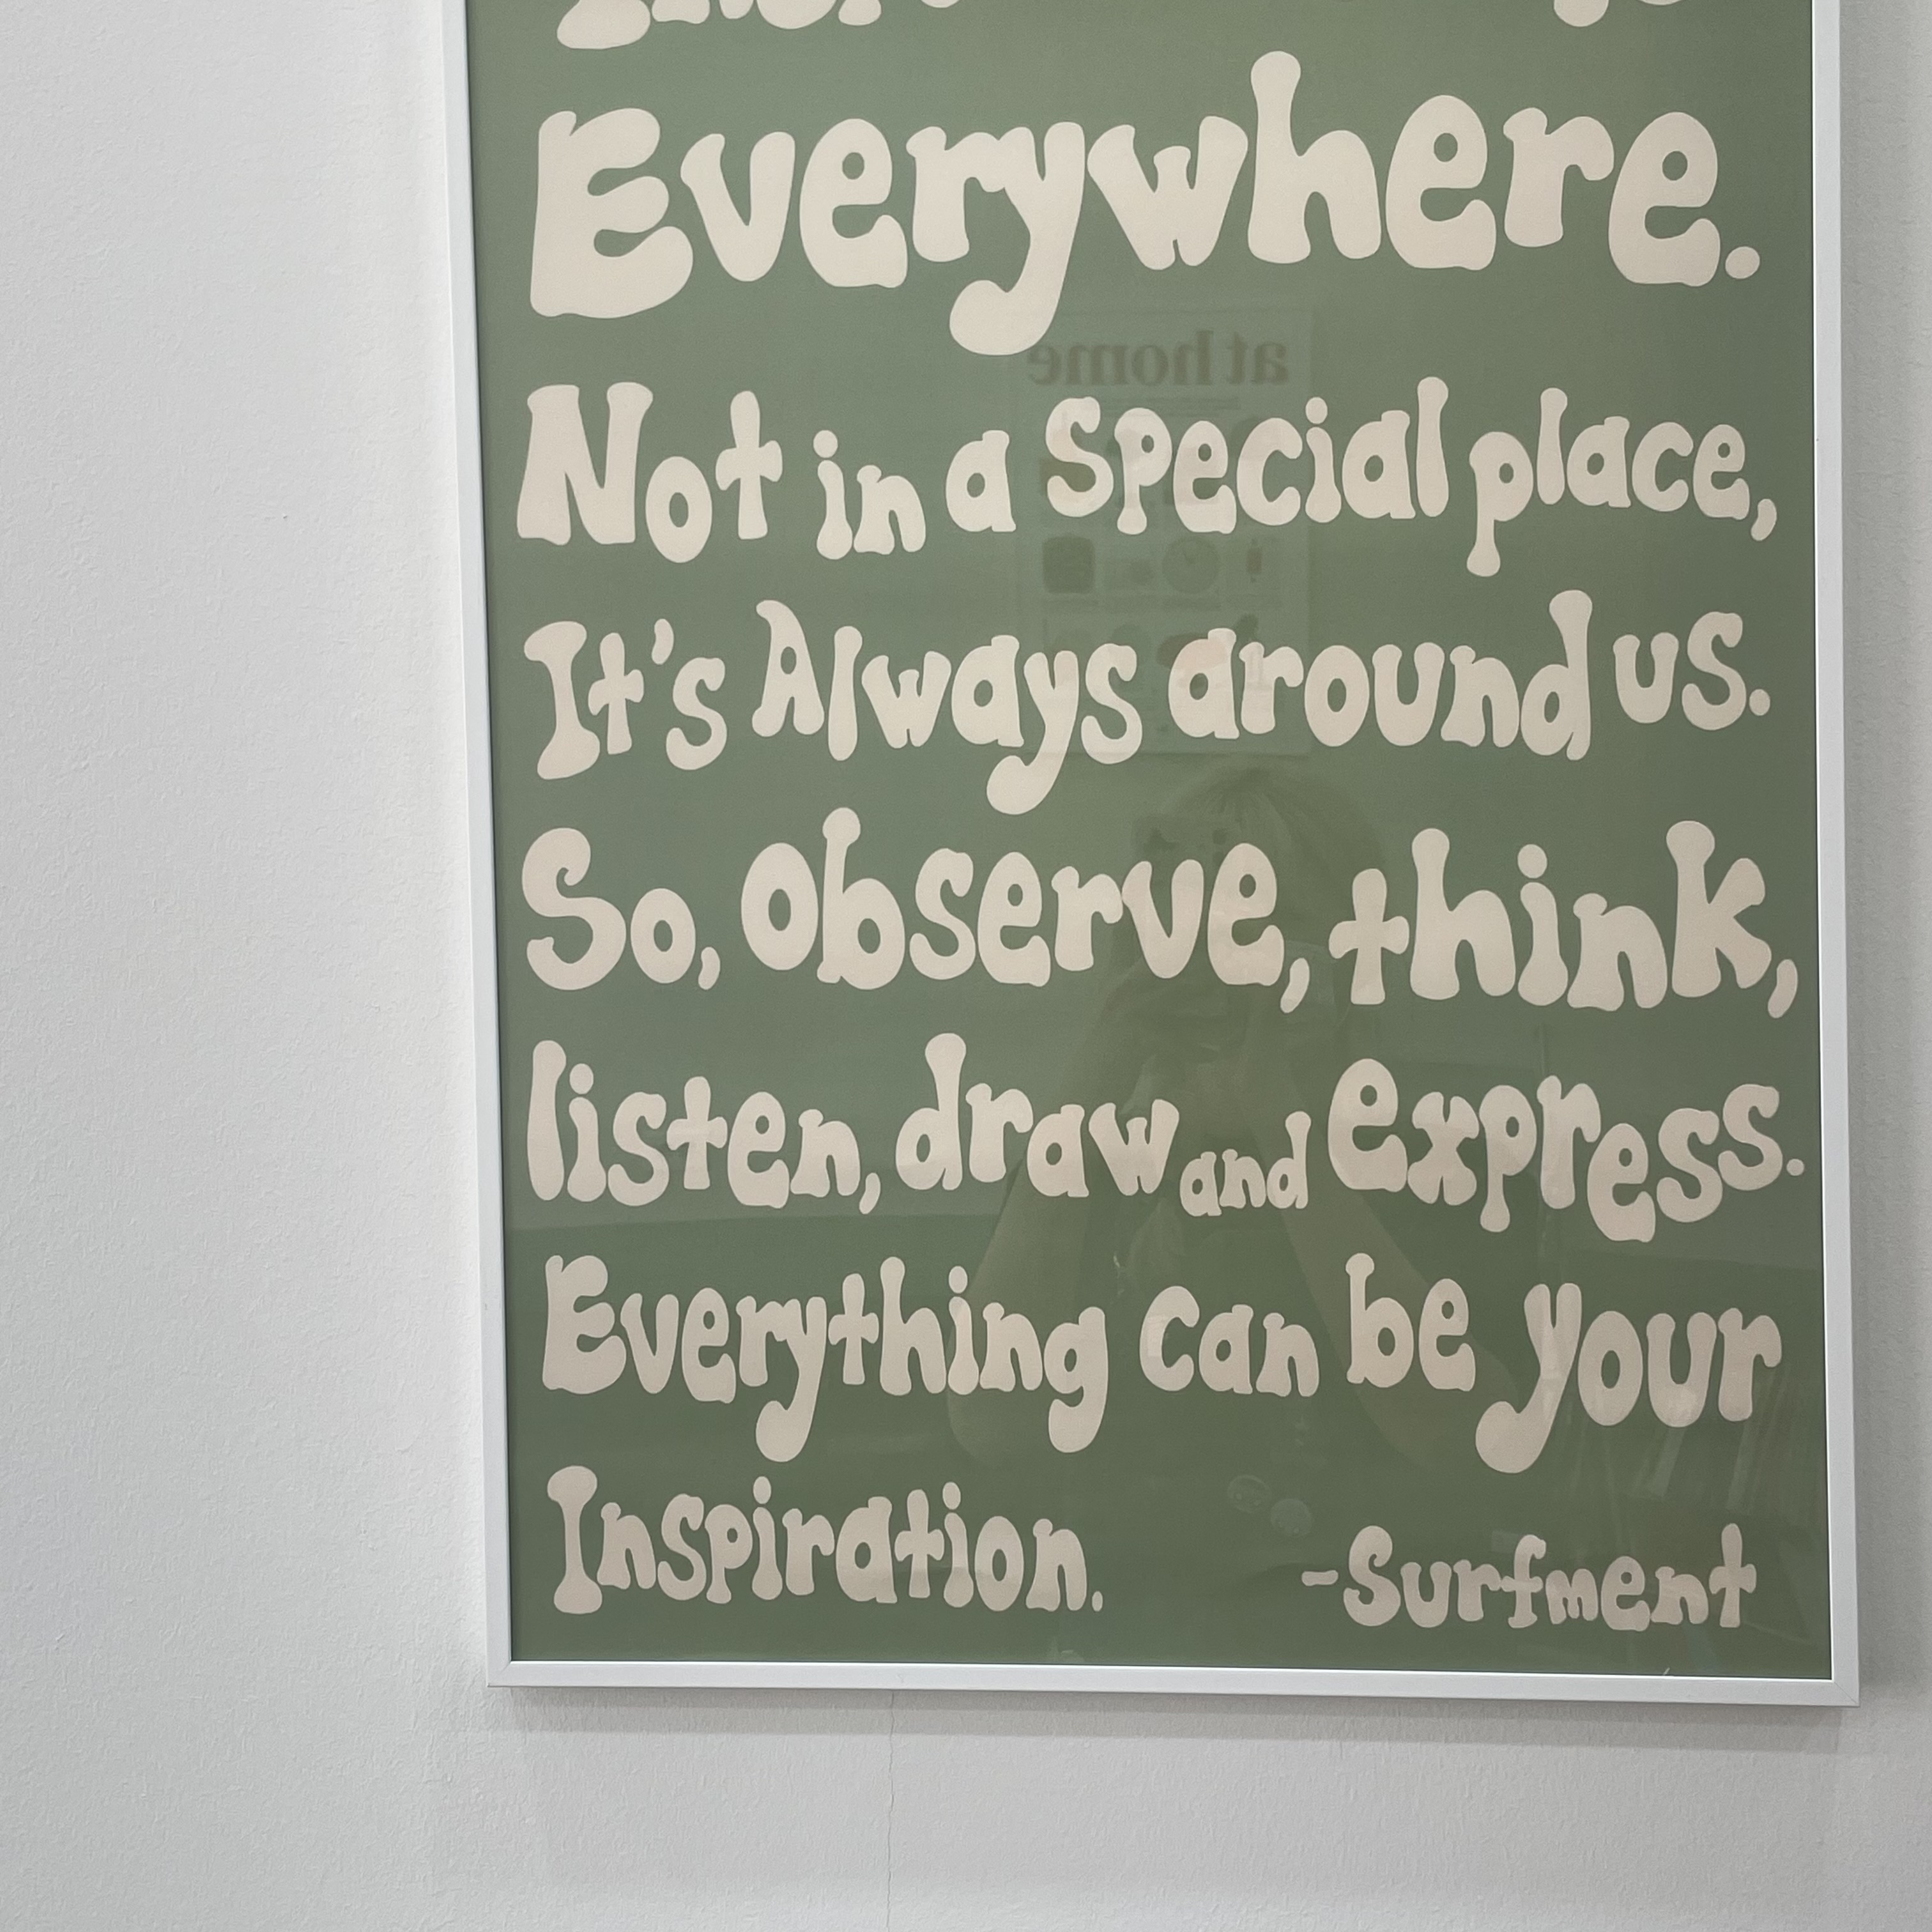 Everywhere.
Not in a special place,
It's Always around us.
So, observe, think,
listen, draw and express.
Everything can be your
Inspiration.
-Surfment
at home